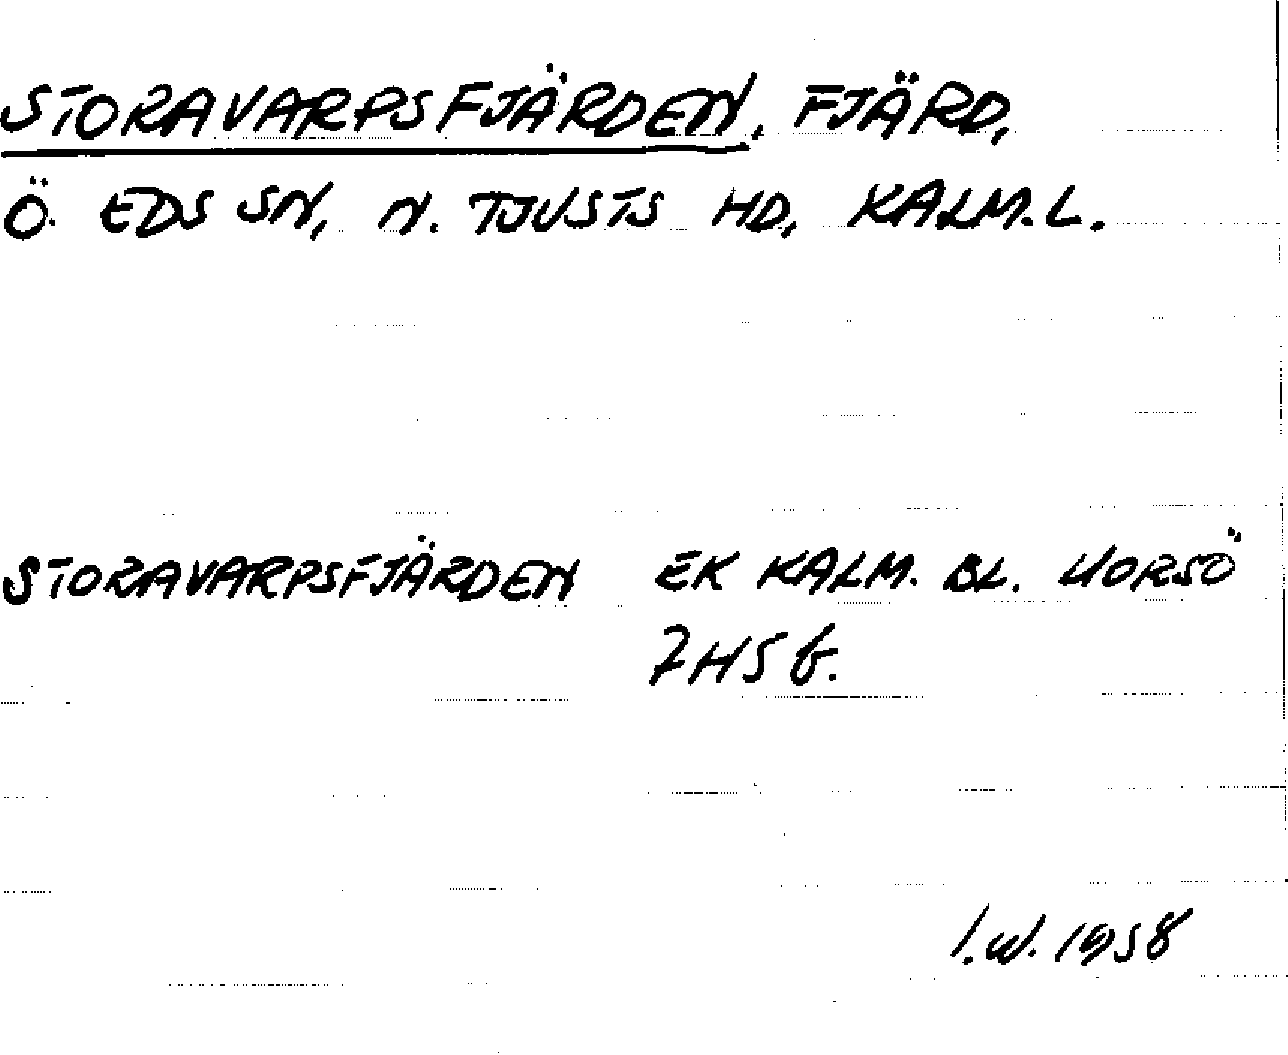 STORAVARPSFJÄRDEN, FJÄRD,
Ö. EDS SN, N. TJUSTS HD, KALM. L.
STORAVARPSFJÄRDEN EK KALM. BL. HORSÖ
7H5b.
I.W. 1958